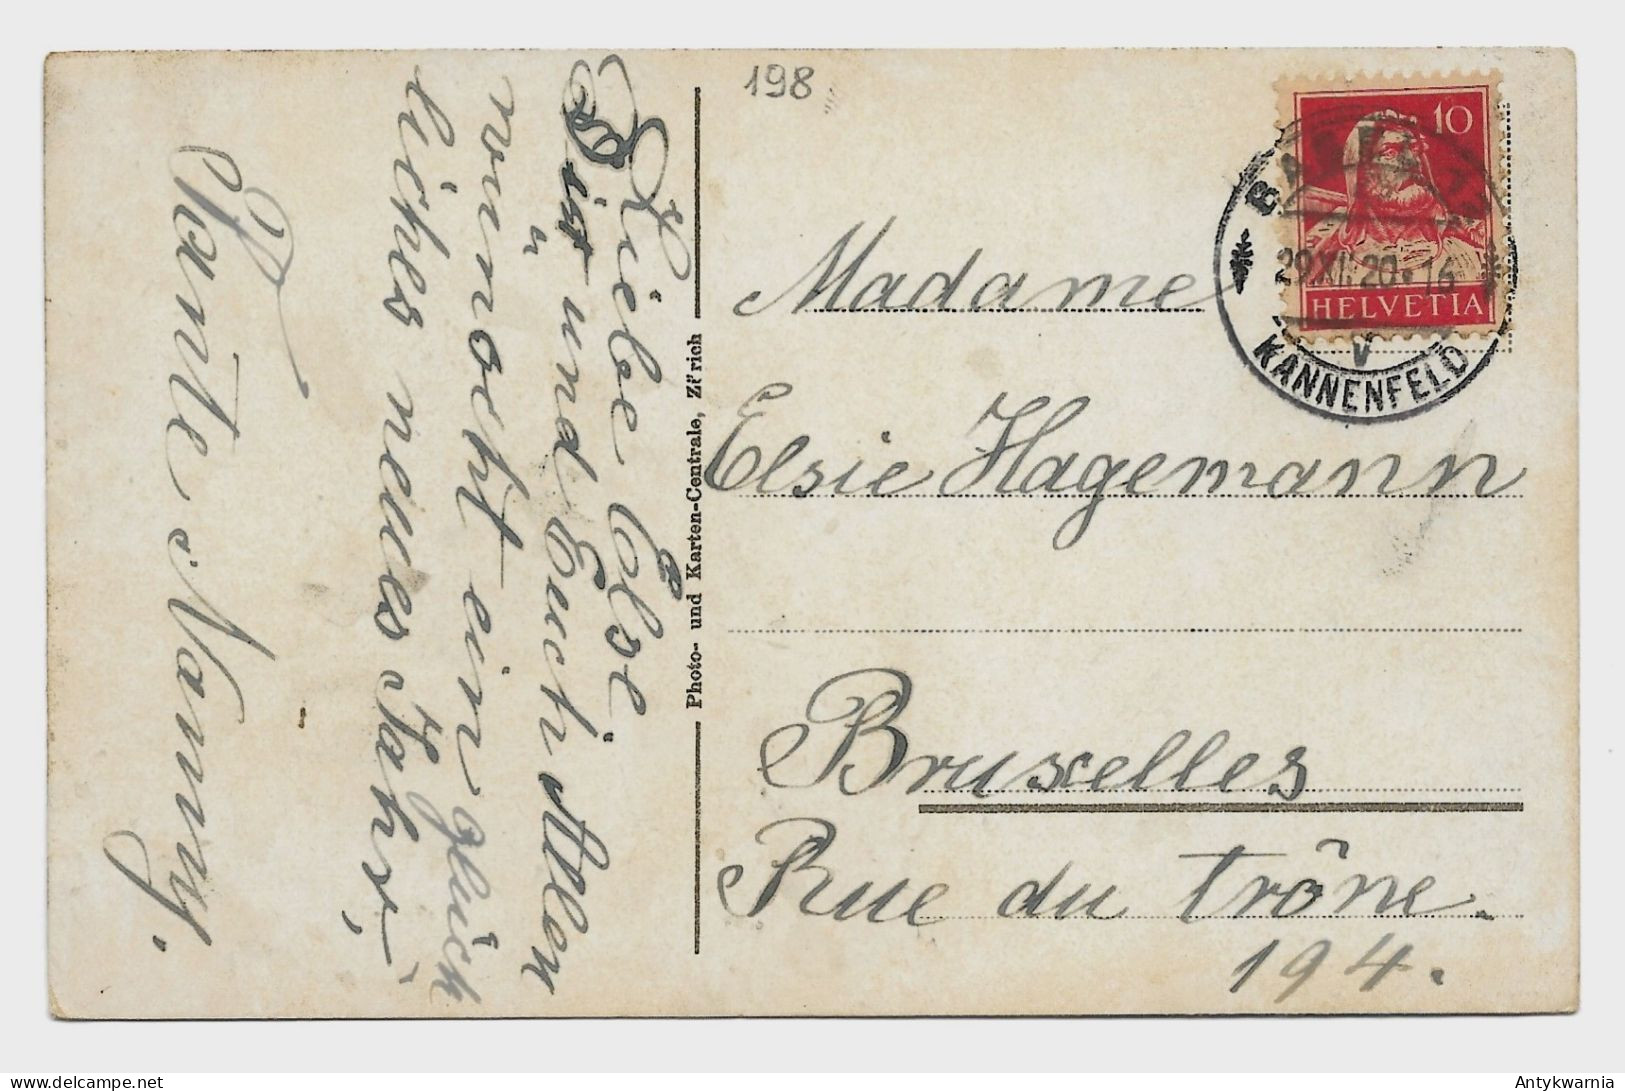 198
Liebe Else
Dir und Euch Allen
wünscht ein glück
liches neues Jahr,
Tante Nanny.
Photo- und Karten-Centrale, Zürich
10
HELVETIA
BASEL
29.XII.20.-16
V
KANNENFELD
Madame
Elsie Hagemann
Bruxelles
Rue du trône.
194.
delcampe.net
Antykwarnia